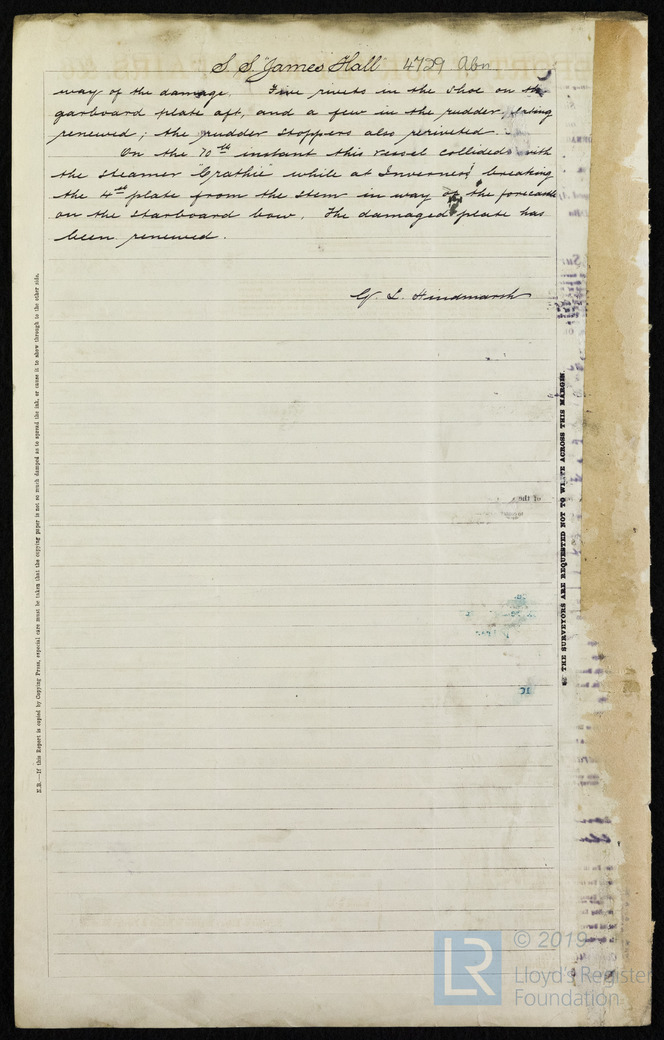 S. S. "James Hall" 4729 Abn
way of the damage. Five rivets in the shoe on the
garboard plate aft, and a few in the rudder,
renewed; the rudder stoppers also reriveted.
On the 10th instant this vessel collided with
the steamer "Crathie" while at Inverness breaking
the 4th plate from the stem in way of the forecastle
on the starboard bow. The damaged plate has
been renewed.
G. L. Hindmarsh
N.B.—If this Report is copied by Copying Press, especial care must be taken that the copying paper is not so much damped as to spread the ink, or cause it to show through to the other side.
THE SURVEYORS ARE REQUESTED NOT TO WRITE ACROSS THIS MARGIN.
of the
LR
© 2019
Lloyd's Register
Foundation